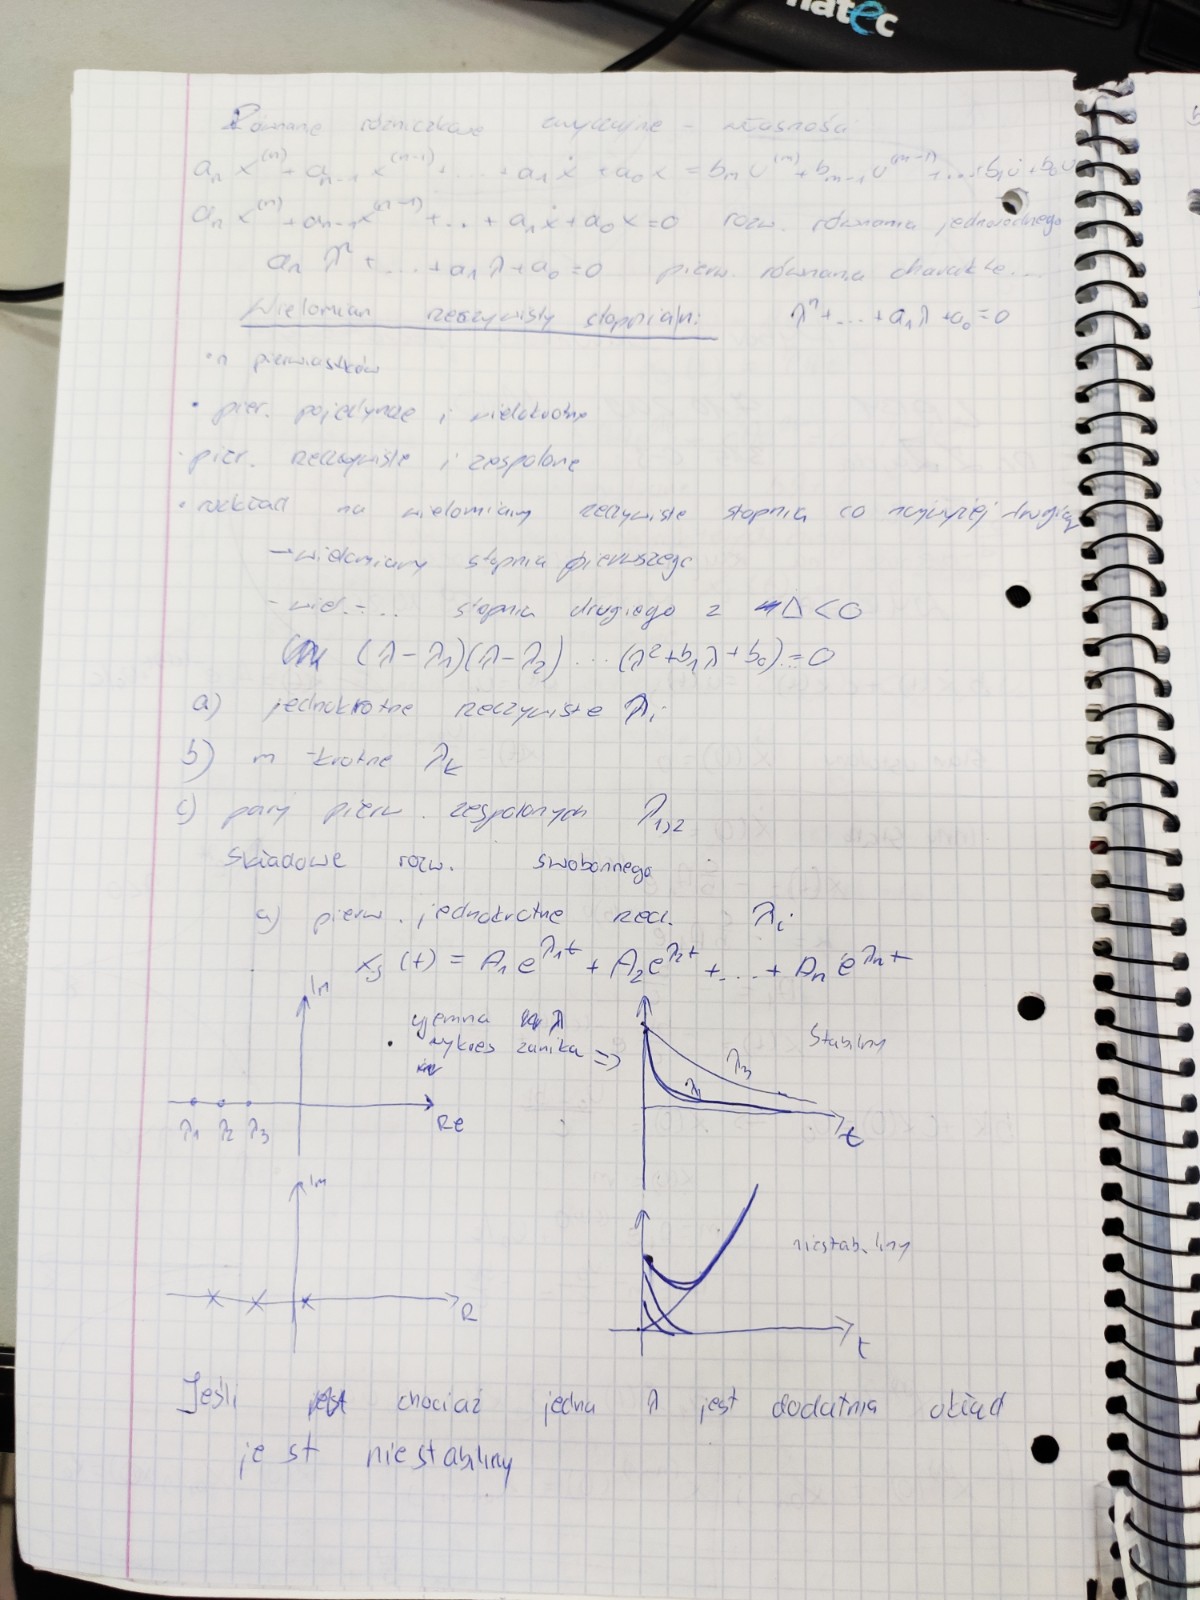 natec
Równanie różniczkowe zwyczajne - własności
aₙ x⁽ⁿ⁾ + aₙ₋₁ x⁽ⁿ⁻¹⁾ + ... + a₁ẋ + a₀x = bₘ u⁽ᵐ⁾ + bₘ₋₁ u⁽ᵐ⁻¹⁾ + ... + b₁u̇ + b₀u
aₙ x⁽ⁿ⁾ + aₙ₋₁x⁽ⁿ⁻¹⁾ + ... + a₁ẋ + a₀x = 0 rozw. równania jednorodnego
aₙ λⁿ + ... + a₁λ + a₀ = 0 pierw. równania charakte...
Wielomian rzeczywisty stopnia n: λⁿ + ... + a₁λ + a₀ = 0
• n pierwiastków
• pier. pojedyncze i wielokrotne
• pier. rzeczywiste i zespolone
• rozkład na wielomiany rzeczywiste stopnia co najwyżej drugiego
- wielomiany stopnia pierwszego
- wiel. - ... stopnia drugiego z Δ < 0
(λ - λ₁)(λ - λ₂) ... (λ² + b₁λ + b₀) ... = 0
a) jednokrotne rzeczywiste λᵢ
b) m - krotne λₖ
c) pary pierw. zespolonych λ₁,₂
Składowe rozw. swobonnego
a) pierw. jednokrotne rzecz. λᵢ
xₛ (t) = A₁ e^λ₁t + A₂ e^λ₂t + ... + Aₙ e^λₙt
Im
ujemna λ
• wykres zanika =>
Stabilny
λ₃
λ₁
λ₁ λ₂ λ₃
Re
t
Im
niestabilny
R
t
Jeśli chociaż jedna λ jest dodatnia układ
jest niestabilny